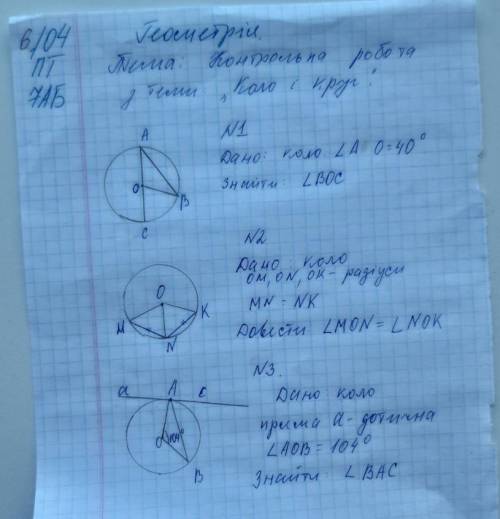 6/04
ПТ
7АБ
Геометрія.
Тема: Контрольна робота
з теми „Коло і круг".
A
O
B
C
N1
Дано: коло ∠A O=40°
Знайти: ∠BOC
O
M
K
N
N2
Дано коло
OM, ON, OK - радіуси
MN = NK
Довести ∠MON = ∠NOK
a
A
c
O
104°
B
N3.
Дано коло
пряма a - дотична
∠AOB = 104°
Знайти: ∠BAC